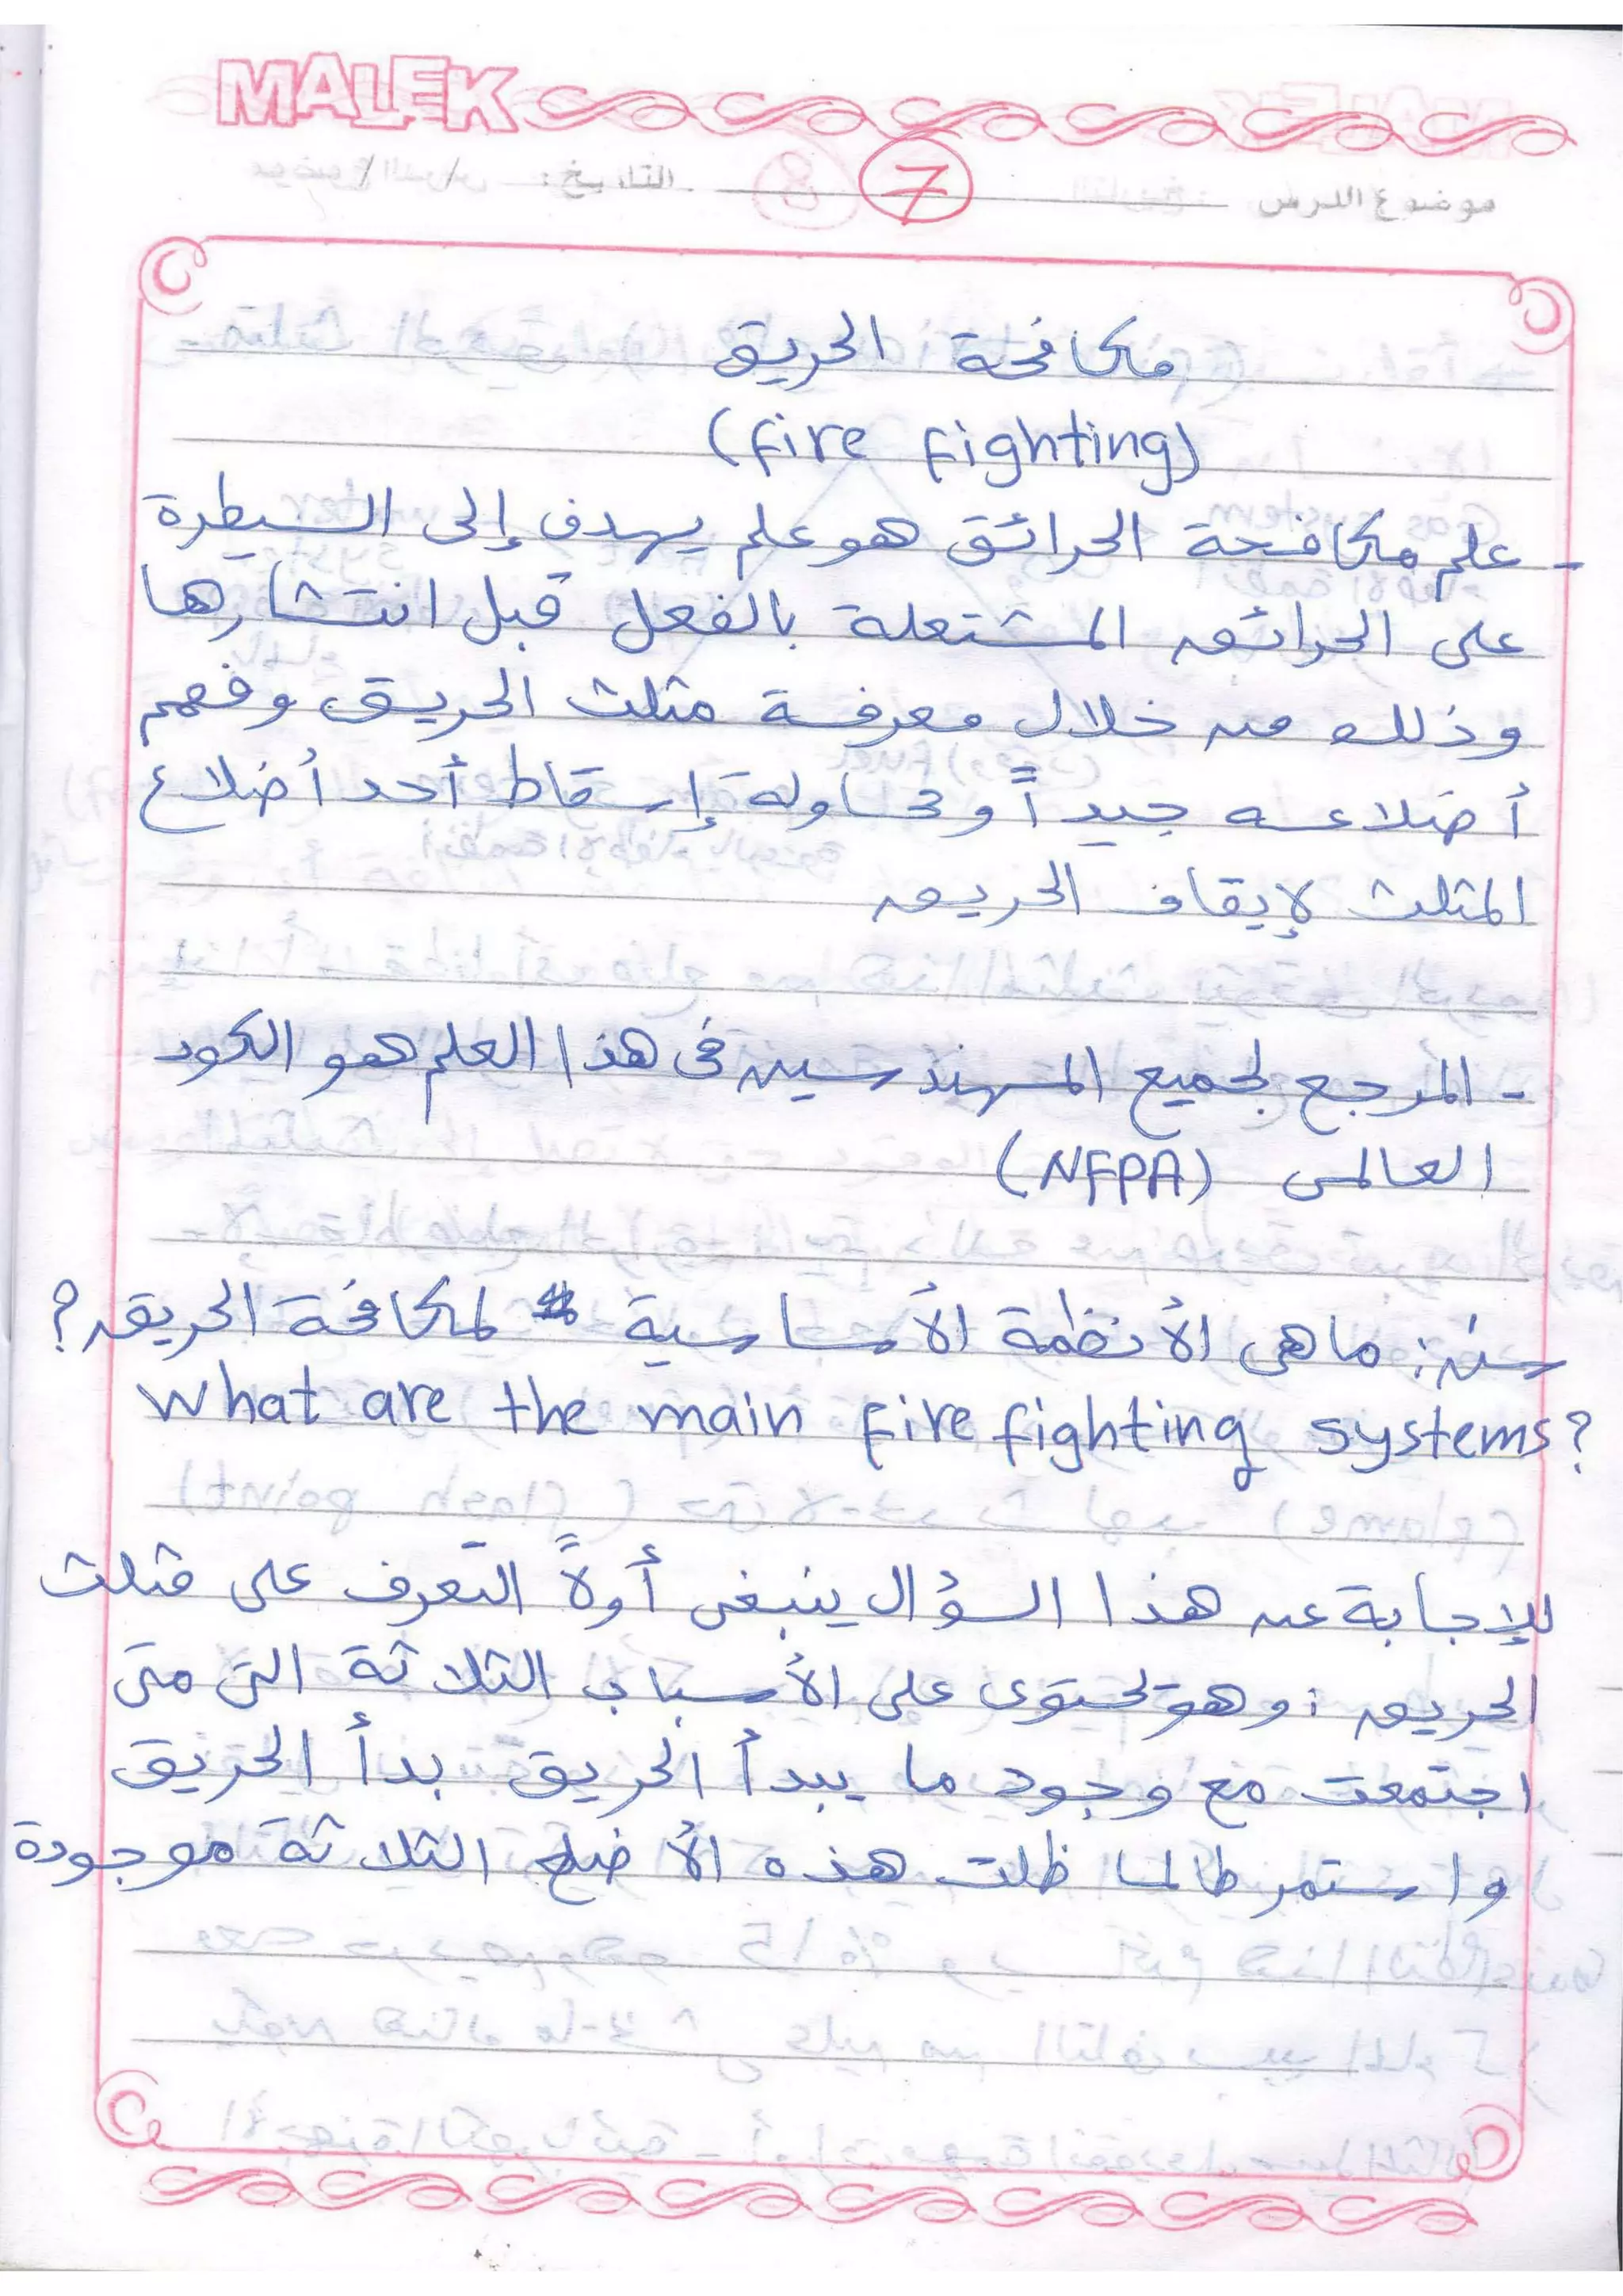 MALEK
موضوع الدرس 7 التاريخ: / /
مكافحة الحريق
(fire fighting)
- علم مكافحة الحرائق هو علم يهدف إلى السيطرة
على الحرائق المشتعلة بالفعل قبل انتشارها
وذلك من خلال معرفة مثلث الحريق وفهم
أضلاعه جيداً ومحاولة إسقاط أحد أضلاع
المثلث لإيقاف الحريق
- المرجع لجميع المهندسين فى هذا العلم هو الكود
العالمى (NFPA)
س: ماهى الأنظمة الأساسية لمكافحة الحريق؟
What are the main fire fighting systems?
للإجابة عن هذا السؤال ينبغى أولاً التعرف على مثلث
الحريق: وهو يحتوى على الأسباب الثلاثة التى متى
اجتمعت مع وجود ما يبدأ الحريق بدأ الحريق
واستمر طالما ظلت هذه الأضلع الثلاثة موجودة